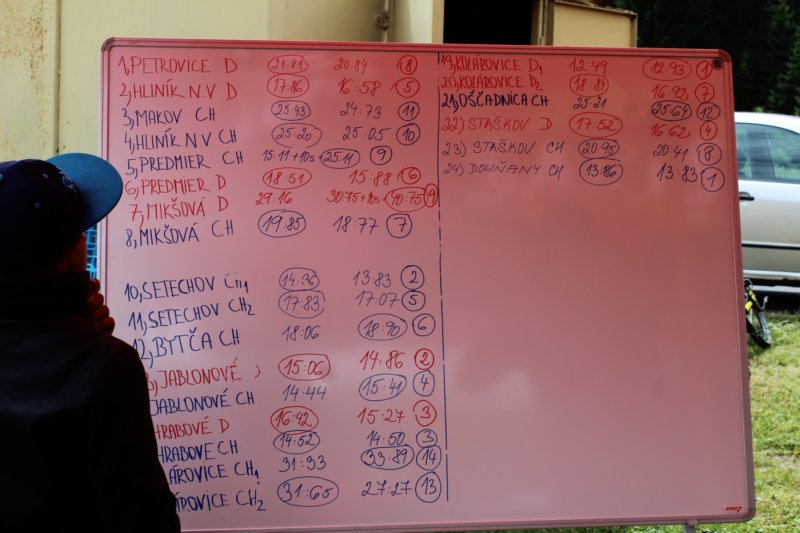 1, PETROVICE D 21:81 20:84 8
2, HLINÍK N.V D 17:86 16:58 5
3, MAKOV CH 25:43 24:73 11
4, HLINÍK N V CH 25:20 25:05 10
5, PREDMIER CH 15:11+10s 25:11 9
6, PREDMIER D 18:51 15:88 6
7, MIKŠOVÁ D 29:16 30:75+10s 40:75 9
8, MIKŠOVÁ CH 19:85 18:77 7
10, SETECHOV CH1 14:36 13:83 2
11, SETECHOV CH2 17:83 17:07 5
12, BYTČA CH 18:06 18:90 6
JABLONOVÉ 15:06 14:86 2
JABLONOVÉ CH 14:44 15:41 4
HRABOVÉ D 16:42 15:27 3
HRABOVE CH 14:52 14:50 3
LÁROVICE CH1 31:33 33:89 14
ÁROVICE CH2 31:65 27:27 13
19, KOLÁROVICE D1 12:49 12:93 1
20, KOLÁROVICE D2 18:84 16:92 7
21, OŠČADNICA CH 25:21 25:64 12
22) STAŠKOV D 17:52 16:62 4
23) STAŠKOV CH 20:95 20:41 8
24) DOHŇANY CH 13:86 13:83 1